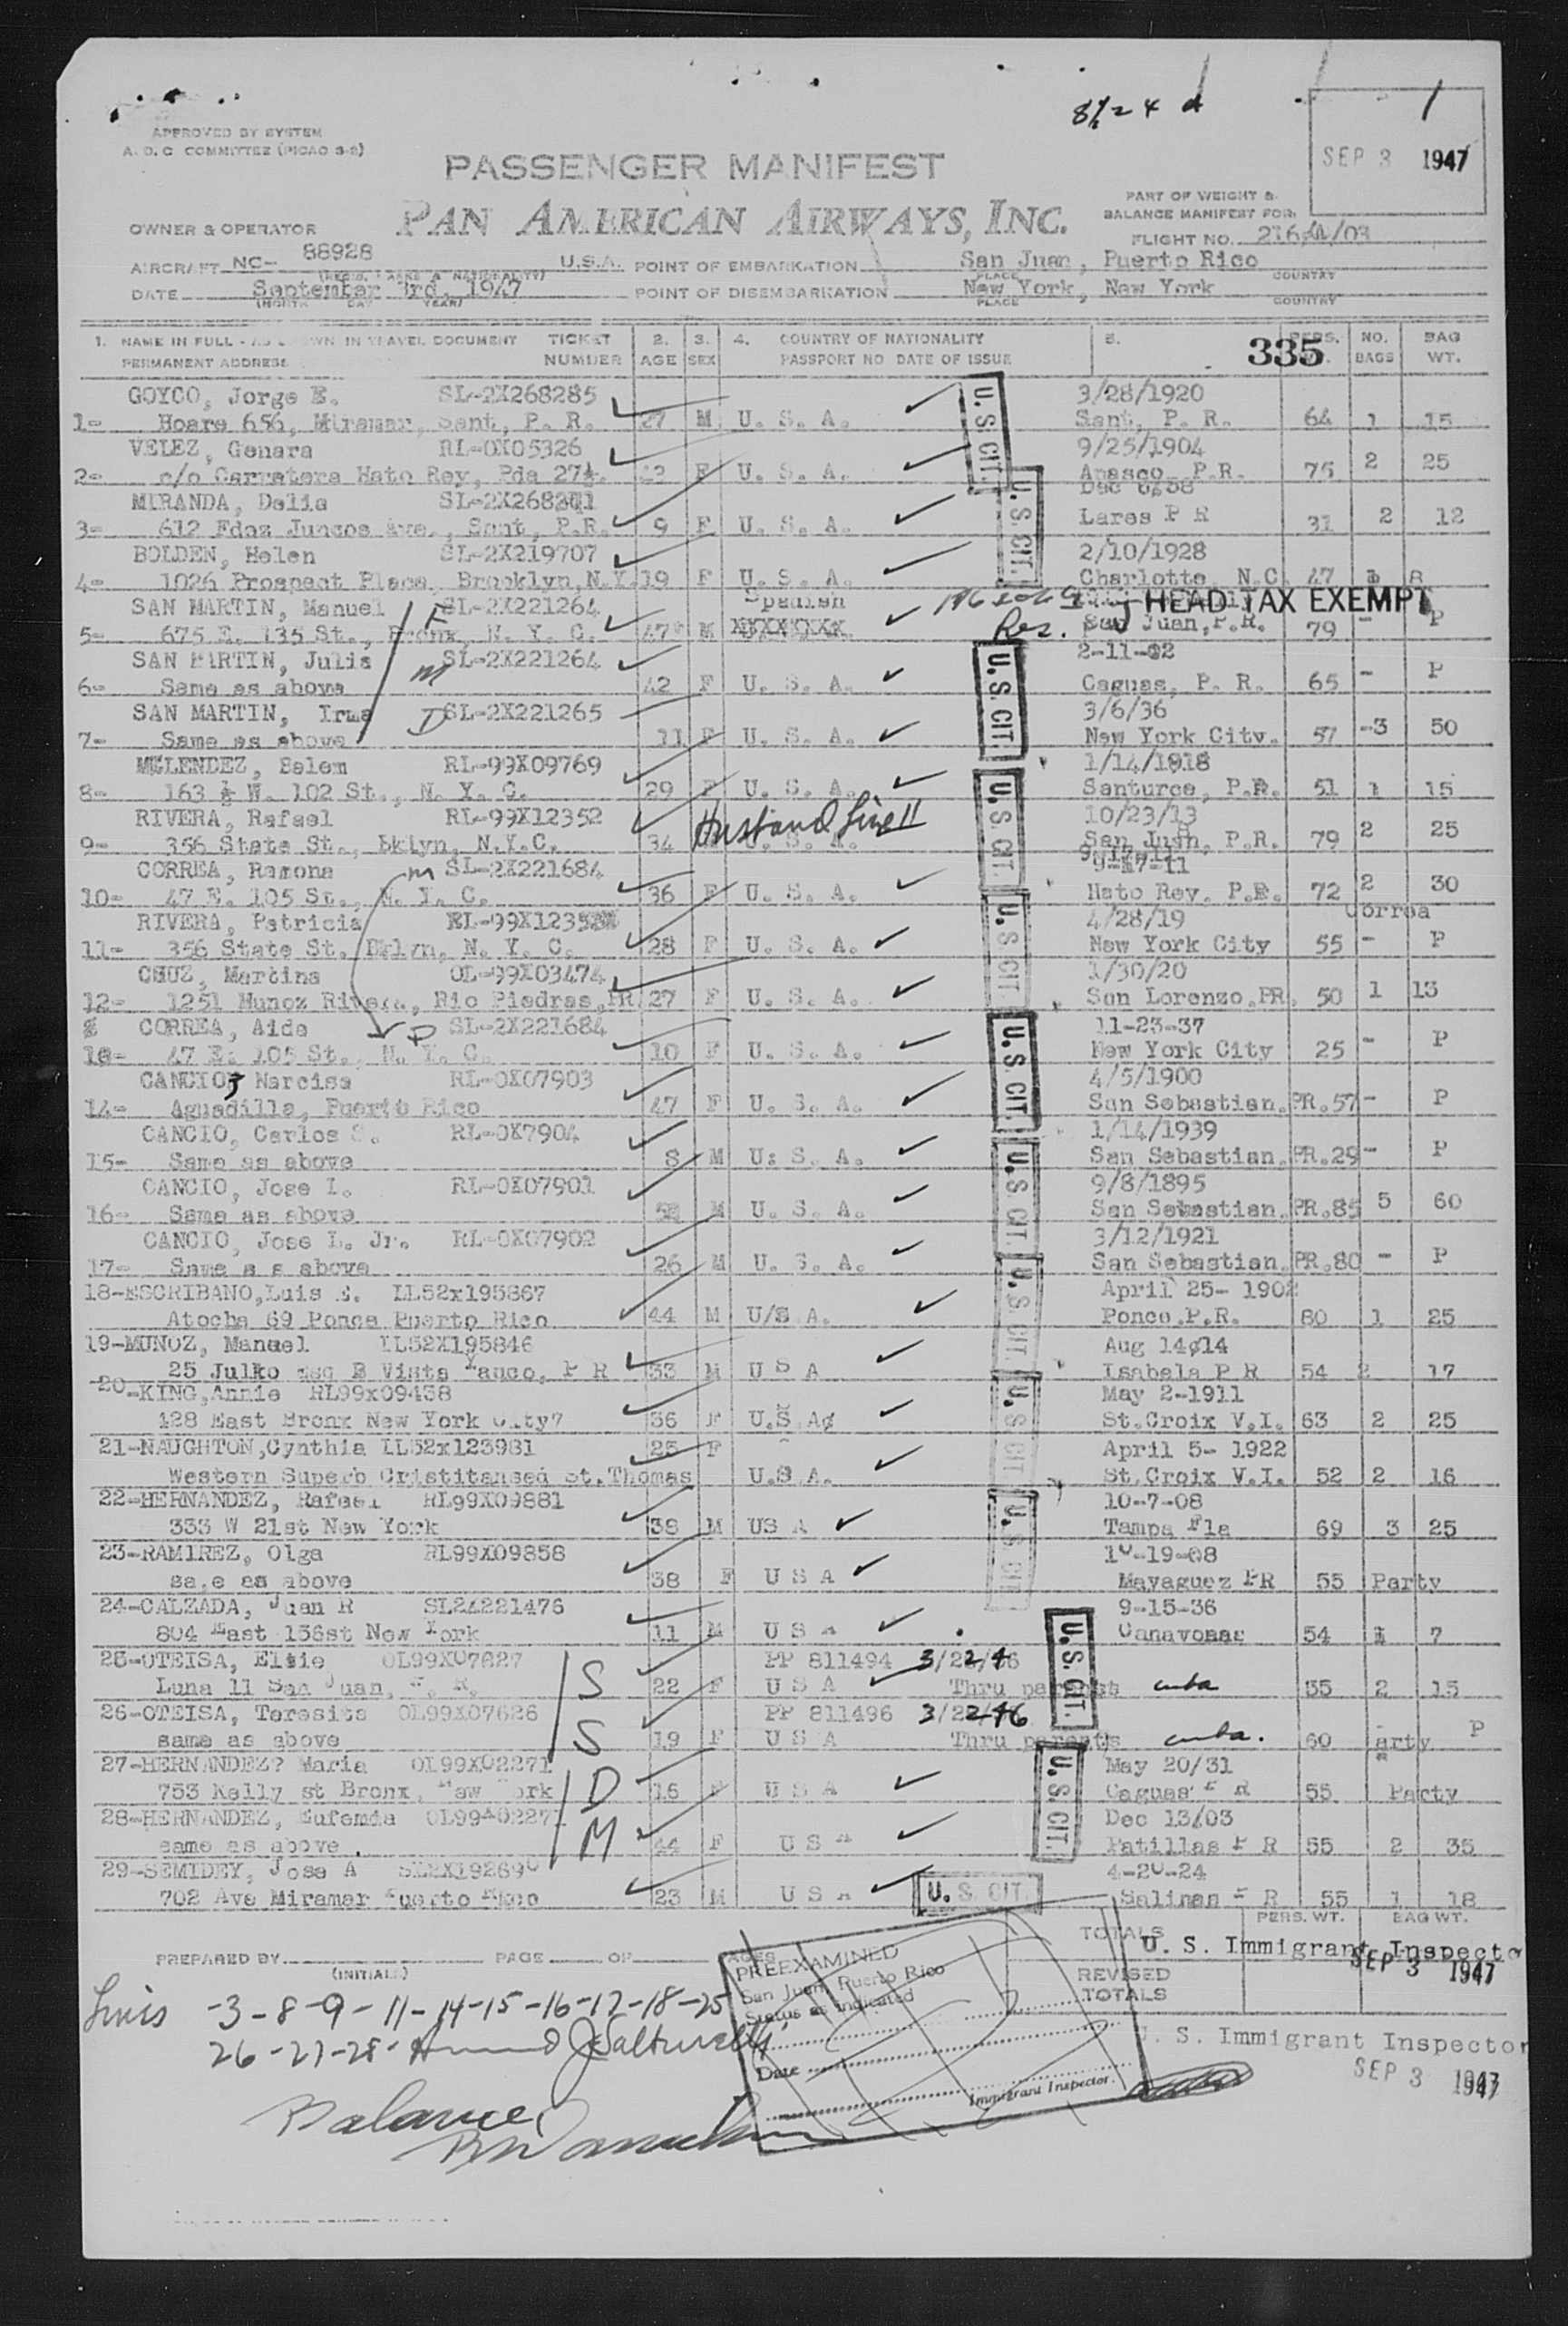 8½ 24
1
APPROVED BY SYSTEM
A. O. C COMMITTEE (PICAO S-8)
SEP 3 1947
PASSENGER MANIFEST
PAN AMERICAN AIRWAYS, INC.
PART OF WEIGHT &
BALANCE MANIFEST FOR:
OWNER & OPERATOR
FLIGHT NO.
AIRCRAFT NC- 88928 U.S.A. POINT OF EMBARKATION San Juan, Puerto Rico
PLACE COUNTRY
DATE September 3rd, 1947 POINT OF DISEMBARKATION New York, New York
(MONTH DAY YEAR) PLACE COUNTRY
1. NAME IN FULL - AS SHOWN IN TRAVEL DOCUMENT TICKET 2. 3. 4. COUNTRY OF NATIONALITY 5. PERS. NO. BAG
PERMANENT ADDRESS NUMBER AGE SEX PASSPORT NO DATE OF ISSUE 335 BAGS WT.
GOYCO, Jorge E. SL-2X268285 3/28/1920
1- Hoare 656, Miramar, Sant, P. R. 27 M U. S. A. U. S. CIT. Sant, P. R. 64 1 15
VELEZ, Genara RL-0X05326 9/25/1904
2- c/o Carratera Hato Rey, Pda 27½. 42 F U. S. A. Anasco P.R. 75 2 25
MIRANDA, Delia
3- 612 Fdez Juncos Ave., Sant, P.R. 9 F U. S. A. U. S. CIT. Lares P R 31 2 12
BOLDEN, Helen SL-2X219707 2/10/1928
4- 1026 Prospect Place, Brooklyn,N.Y. 19 F U. S. A. Charlotte, N.C. 47 8
SAN MARTIN, Manuel F SL-2X221264 Spanish HEAD TAX EXEMPT
5- 675 E. 135 St., Bronx, N. Y. C. 47 M XXXXXXXX Res. San Juan, P.R. 79 - P
SAN MARTIN, Julia M SL-2X221264 2-11-02
6- Same as above 42 F U. S. A. U. S. CIT. Caguas, P. R. 65 - P
SAN MARTIN, Irma D SL-2X221265 3/6/36
7- Same as above 11 F U. S. A. New York City. 57 -3 50
MELENDEZ, Belem RL-99X09769 1/14/1918
8- 163 ½ W. 102 St., N. Y. C. 29 F U. S. A. U. S. CIT. Santurce, P.R. 51 1 15
RIVERA, Rafael RL-99X12352 Husband line 11 10/23/13
9- 356 State St., Bklyn, N.Y.C. 34 U. S. A. San Juan, P.R. 79 2 25
CORREA, Ramona M SL-2X221684 9-17-11
10- 47 E. 105 St., N. Y. C. 36 F U. S. A. Hato Rey, P.R. 72 2 30
RIVERA, Patricia 4/28/19 Correa
11- 356 State St. Bklyn, N. Y. C. 28 F U. S. A. U. S. CIT. New York City 55 - P
CRUZ, Martina OL-99X03474 1/30/20
12- 1251 Munoz Rivera, Rio Piedras,PR 27 F U. S. A. San Lorenzo,PR. 50 1 13
CORREA, Aida D SL-2X221684 11-23-37
47 E. 105 St., N. Y. C. 10 F U. S. A. U. S. CIT. New York City 25 - P
CANCIO, Narcisa RL-0X07903 4/5/1900
14- Aguadilla, Puerto Rico 47 F U. S. A. San Sebastian,PR. 57 - P
CANCIO, Carlos S. RL-0X7904 1/14/1939
15- Same as above 8 M U: S. A. U. S. CIT. San Sebastian,PR. 29 - P
CANCIO, Jose L. RL-0X07901 9/8/1895
16- Same as above M U. S. A. San Sebastian,PR. 85 5 60
CANCIO, Jose L. Jr. RL-0X07902 3/12/1921
17- Same a s above 26 M U. S. A. San Sebastian,PR. 80 - P
18-ESCRIBANO,Luis E. LL52x195867 U. S. CIT. April 25- 1902
Atocha 69 Ponce Puerto Rico 44 M U/S A. Ponce,P.R. 80 1 25
19-MUNOZ, Manuel LL52X195846 Aug 14¢14
25 Julko esq B Vista Yauco, P R 33 M U S A Isabela P R 54 2 17
20-KING,Annie RL99x09458 May 2-1911
428 East Bronx New York City7 36 F U.S.A¢ U. S. CIT. St.Croix V.I. 63 2 25
21-NAUGHTON,Cynthia LL52x123981 25 F April 5- 1922
Western Superb Cristitansed St.Thomas U.S.A. St.Croix V.I. 52 2 16
22-HERNANDEZ, Rafael RL99X09881 10-7-08
333 W 21st New York 38 M US A U. S. CIT. Tampa Fla 69 3 25
23-RAMIREZ, Olga RL99X09858 10-19-08
sa,e as above 38 F U S A Mayaguez PR 55 Party
24-CALZADA, Juan R SL2X221476 9-15-36
804 East 156st New York 11 M U S A 54 7
25-OTEISA, Elsie OL99X07627 S PP 811494
Luna 11 San Juan, P. R. 22 F U S A Thru parents cuba U. S. CIT. 55 2 15
26-OTEISA, Teresita OL99X07626 S PP 811496
same as above 19 F U S A Thru parents cuba. 60 arty P
27-HERNANDEZ? Maria OL99X02271 D May 20/31
753 Kelly st Bronx, New York 16 F U S A U. S. CIT. Caguas P R 55 Party
28-HERNANDEZ, Eufemia OL99X02271 M Dec 13/03
same as above . 44 F U S A Patillas P R 55 2 35
29-SEMIDEY, Jose A SL2X192690 4-20-24
702 Ave Miramar Puerto Rico 23 M U S A U. S. CIT. Salinas P R 55 1 18
PERS. WT. BAG WT.
PREPARED BY PAGE OF PAGES TOTALS U. S. Immigrant Inspector
(INITIALS) SEP 3 1947
REVISED
TOTALS
PREEXAMINED
San Juan, Puerto Rico
Status as indicated
Date
Immigrant Inspector.
Lines -3-8-9-11-14-15-16-17-18-25
26-27-28-
U. S. Immigrant Inspector
SEP 3 1947
Balance